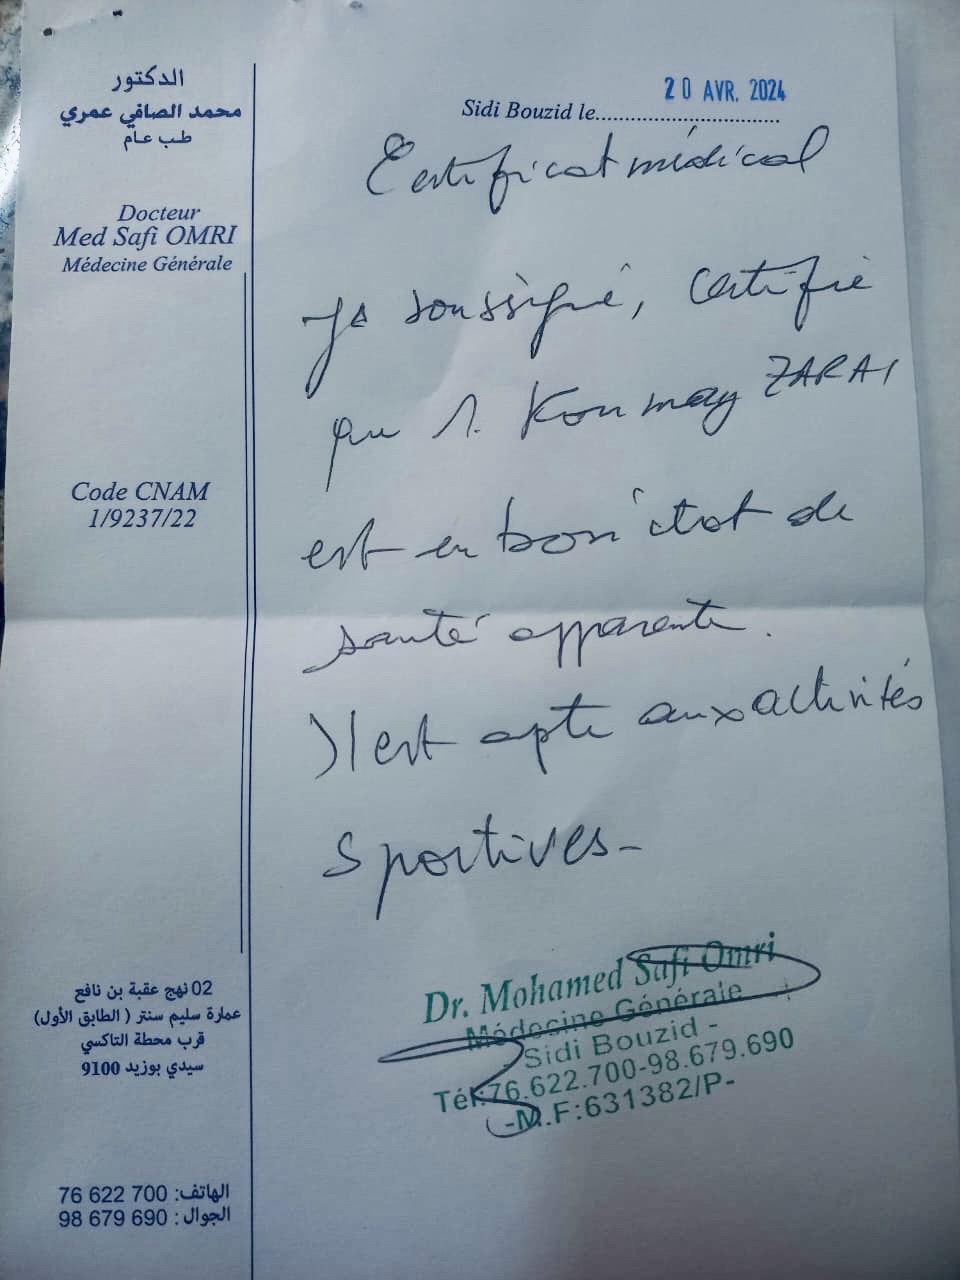 الدكتور
محمد الصافي عمري
طب عام
Docteur
Med Safi OMRI
Médecine Générale
Code CNAM
1/9237/22
02 نهج عقبة بن نافع
عمارة سليم سنتر ( الطابق الأول)
قرب محطة التاكسي
سيدي بوزيد 9100
الهاتف: 700 622 76
الجوال : 690 679 98
20 AVR. 2024
Sidi Bouzid le
Certificat médical
Je soussigné, certifie
que ZARAI
est en bon état de
santé apparente.
Il est apte aux activités
sportives-
Dr. Mohamed Safi Omri
Médecine Générale
Sidi Bouzid -
Tél:76.622.700-98.679.690
-M.F:631382/P-